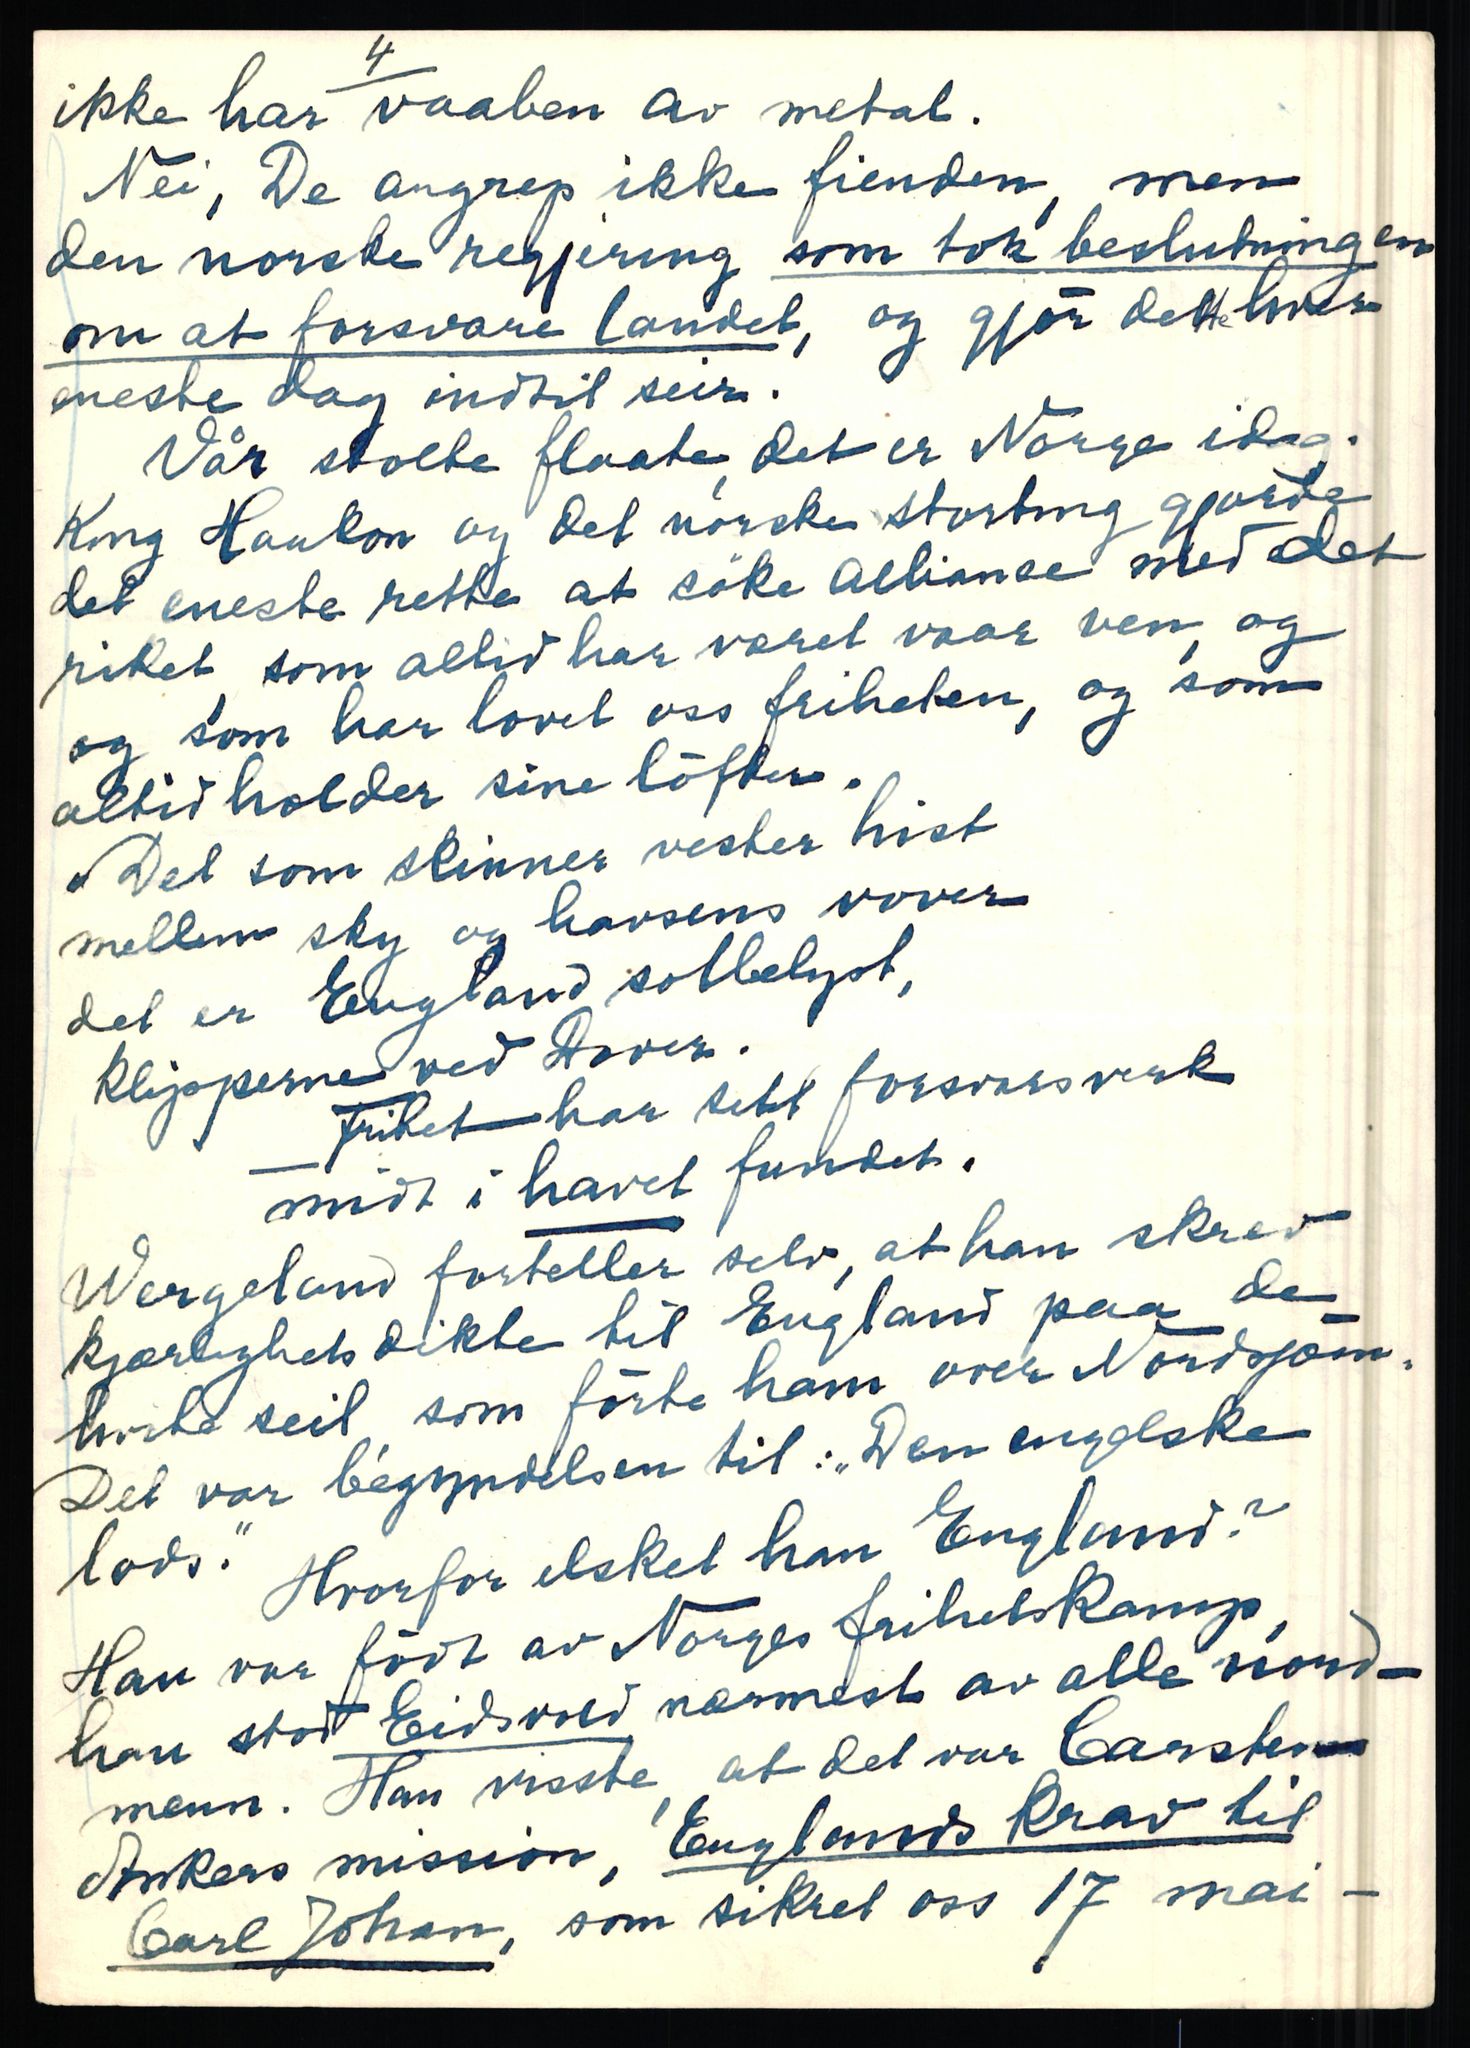 4
ikke har vaaben av metal.
Nei, De angrep ikke fienden, men
den norske regjering som tok beslutningen
om at forsvare landet, og gjör dette hver
eneste dag indtil seir.
Vår stolte flaate, det er Norge idag.
Kong Haakon og det norske storting gjorde
det eneste rette at söke alliance med det
riket, som altid har været vaar ven, og
og som har lovet oss friheten, og som
altid holder sine löfter.
"Det som skinner vester hist
mellem sky og havsens vover
det er England solbelyst,
klipperne ved Dover.
Frihet har sitt forsvarsverk
midt i havet fundet.
Wergeland forteller selv, at han skrev
kjærlighetsdikte til England paa de
hvite seil, som förte ham over Nordsjöen.
Det var begyndelsen til: "Den engelske
lods." Hvorfor elsket han England?
Han var födt av Norges frihetskamp,
han stod Eidsvold nærmest av alle nord-
menn. Han visste, at det var Carsten
Ankers mission, Englands krav til
Carl Johan, som sikret oss 17 mai –